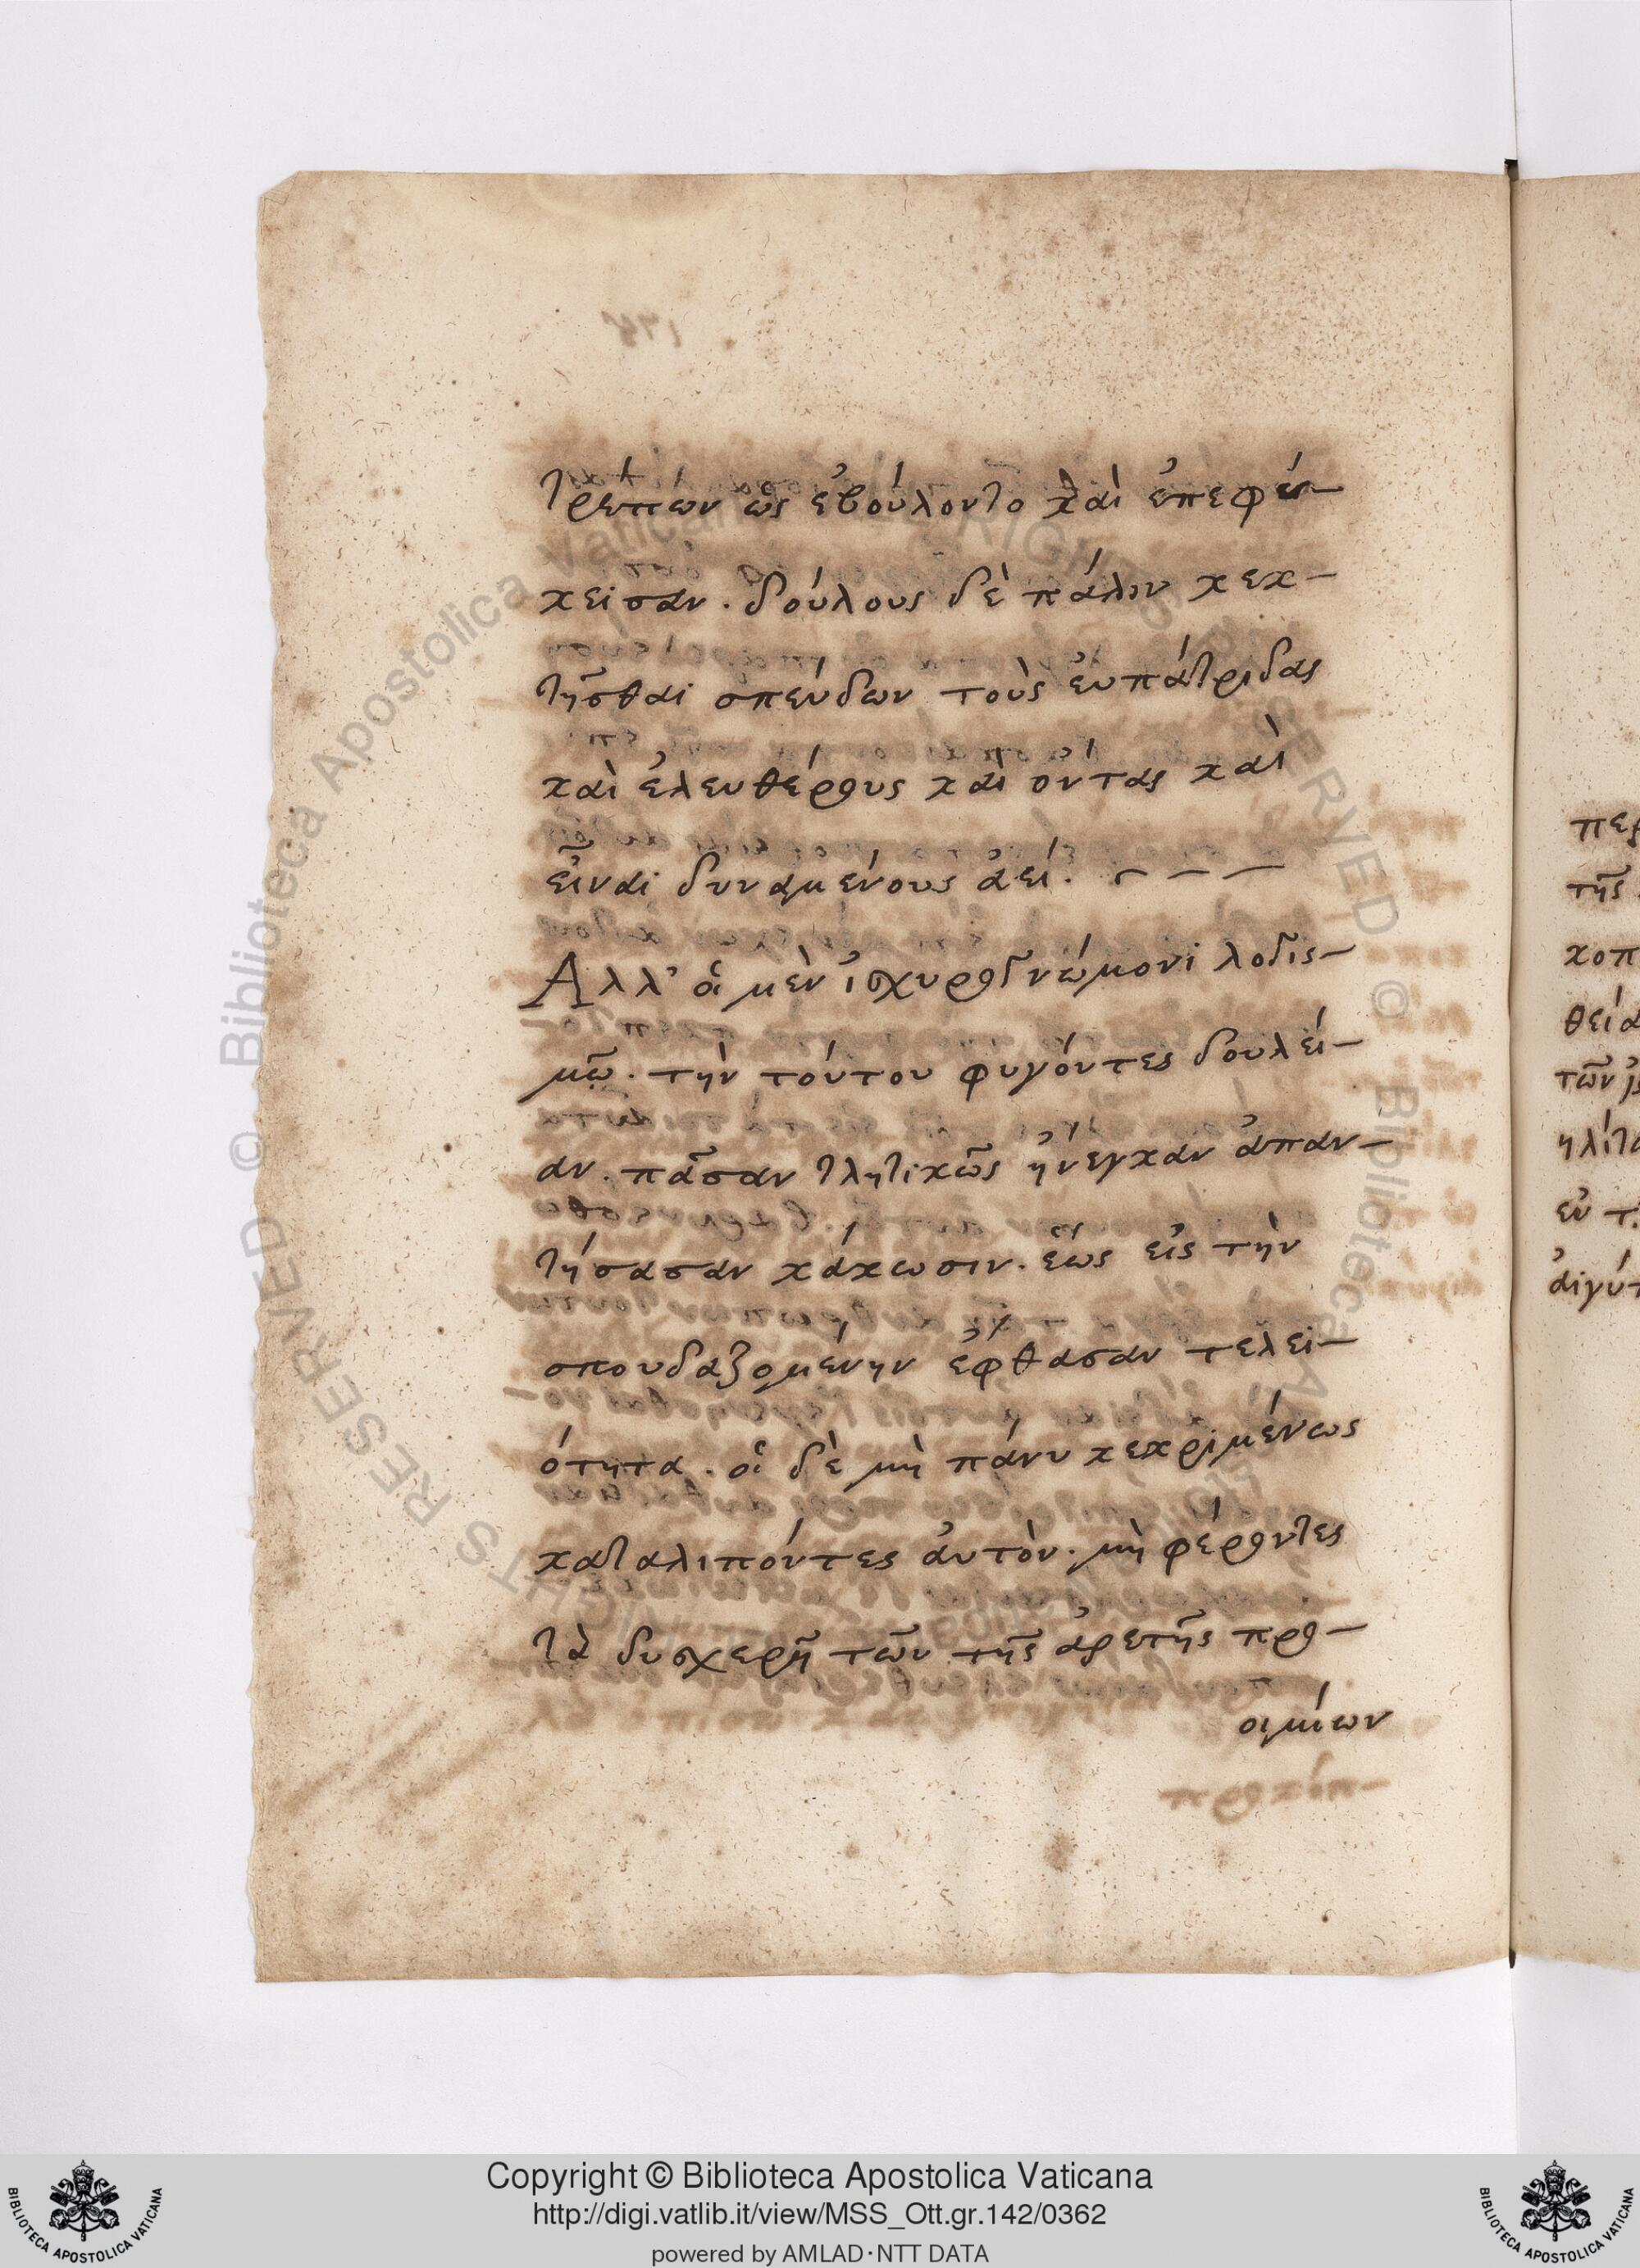 τρέπων ὡς ἐβούλοντο καὶ ἐπεφύ-
κεισαν. δούλους δὲ πάλιν κεκ-
τῆσθαι σπεύδων τοὺς ἐυπάτριδας
καὶ ἐλευθέρους καὶ ὄντας καὶ
εἶναι δυναμένους ἀεί. - - -
Ἀλλ' οἱ μὲν ἰσχυρογνώμονι λογισ-
μῷ. τὴν τούτου φυγόντες δουλεί-
αν. πᾶσαν τλητικῶς ἤνεγκαν ἀπαν-
τήσασαν κάκωσιν. ἕως εἰς τὴν
σπουδαζομένην ἔφθασαν τελει-
ότητα. οἱ δὲ μὴ πάνυ κεκριμένως
καταλιπόντες ἀυτὸν. μὴ φέροντες
τὰ δυσχερῆ τῶν τῆς ἀρετῆς προ-
οιμίων
περ
τῆς
κοπ
θεία
τῶν
ηλίτ
ἐν τ
ἀιγύπ
© Biblioteca Apostolica Vaticana ALL RIGHTS RESERVED
Copyright © Biblioteca Apostolica Vaticana
http://digi.vatlib.it/view/MSS_Ott.gr.142/0362
powered by AMLAD·NTT DATA
BIBLIOTECA APOSTOLICA VATICANA
BIBLIOTECA APOSTOLICA VATICANA